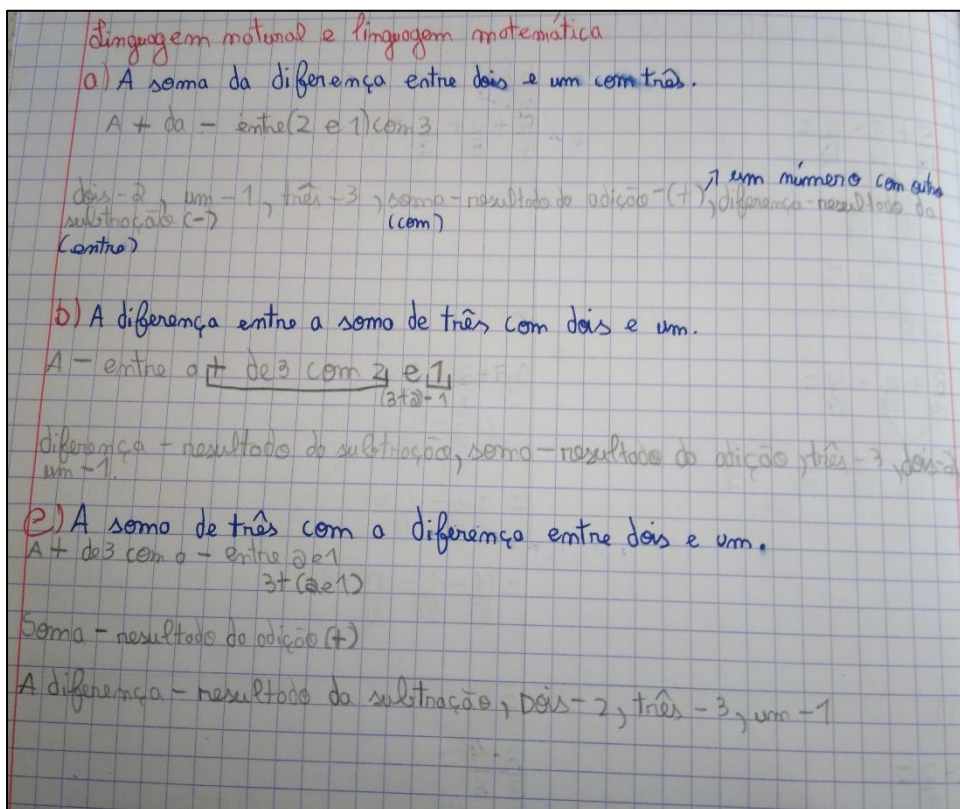 Linguagem natural e linguagem matemática
a) A soma da diferença entre dois e um com três.
A + da - entre (2 e 1) com 3
↗ um número com outro
dois-2, um-1, três-3, soma-resultado da adição-(+), diferença-resultado da
subtração (-) (com)
(entre)
b) A diferença entre a soma de três com dois e um.
A - entre a + de 3 com 2 e 1
(3+2)-1
diferença - resultado da subtração, soma-resultado da adição, três-3, dois-2
um-1.
c) A soma de três com a diferença entre dois e um.
A + de 3 com a - entre 2 e 1
3+(2e1)
Soma - resultado da adição (+)
A diferença - resultado da subtração, Dois-2, três-3, um-1